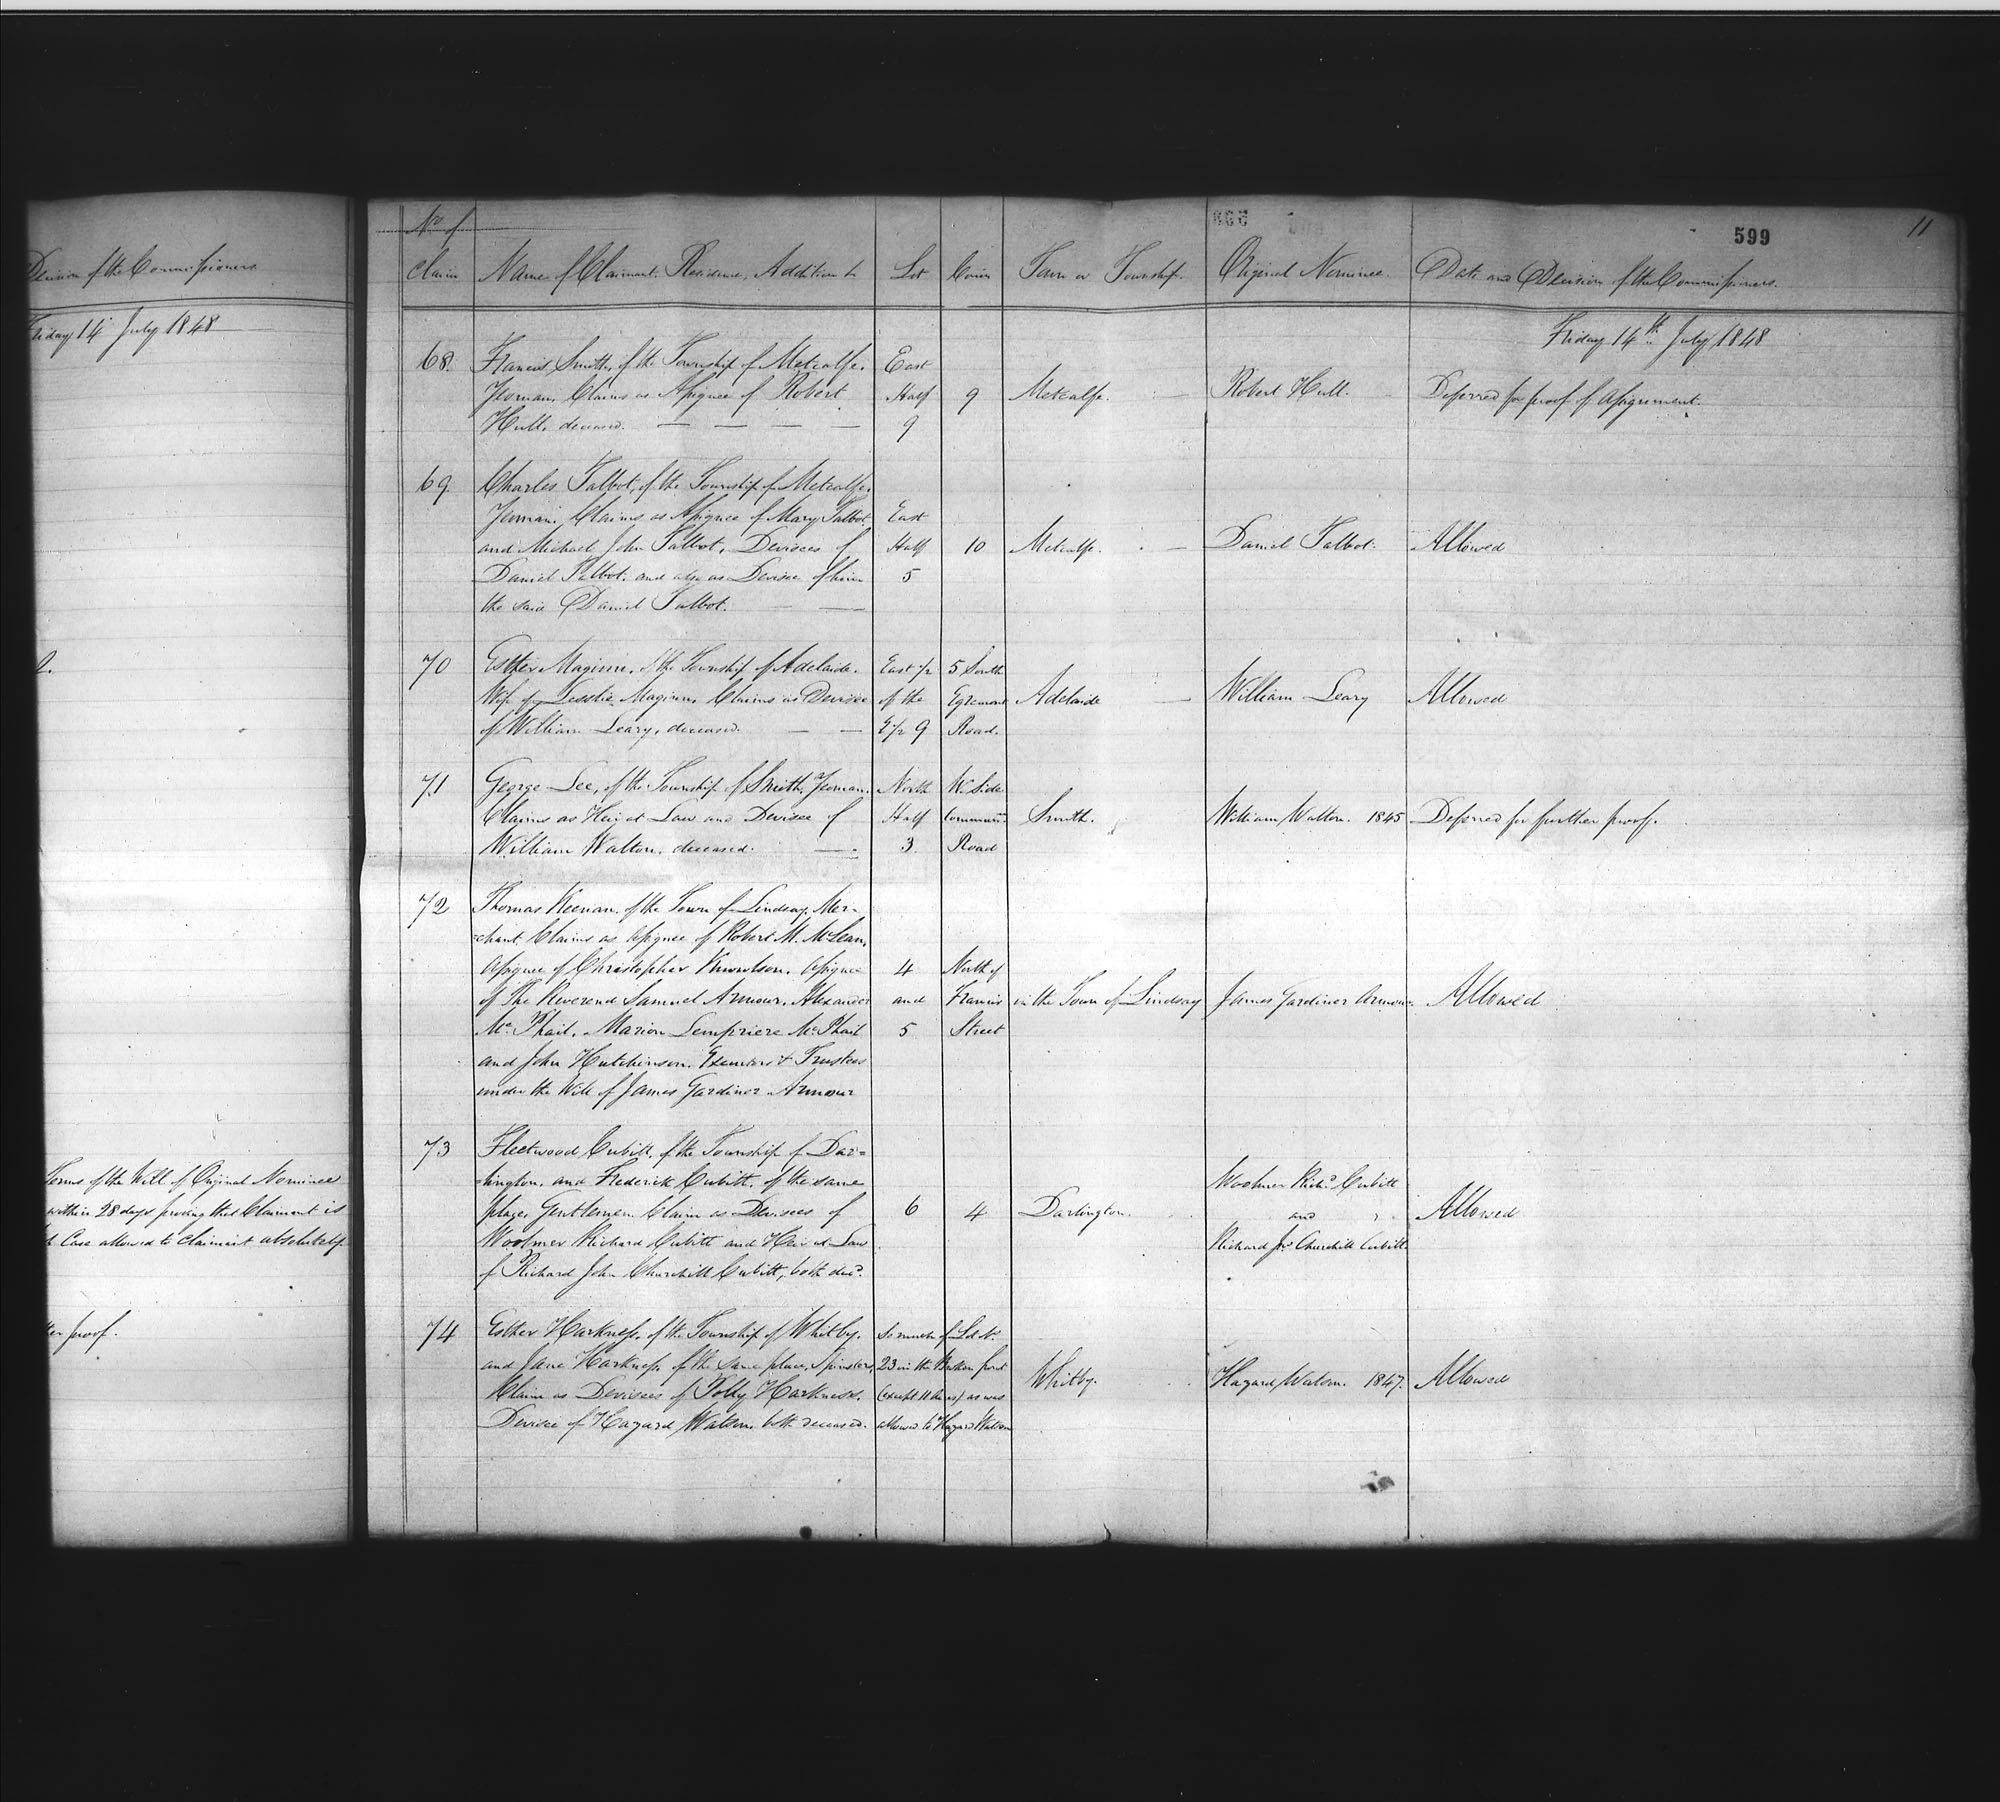 Decision of the Commissioners
Friday 14 July 1848
2.
Terms of the Will of Original Nominee
within 28 days proving that Claimant is
Case allowed to Claimant absolutely.
proof.
599
11
No. of
Claim
Name of Claimant. Residence, Addition &c
Lot
Conn
Town or Township.
Original Nominee.
Date and Decision of the Commissioners.
Friday 14th July 1848
68. Francis Smith, of the Township of Metcalfe. East
Yeoman, Claims as Assignee of Robert Half 9 Metcalfe. Robert Hull. Deferred for proof of Assignment.
Hull, deceased. 9
69. Charles Talbot, of the Township of Metcalfe.
Yeoman. Claims as Assignee of Mary Talbot East
and Michael John Talbot, Devisees of Half 10 Metcalfe. Daniel Talbot. Allowed
Daniel Talbot. and also as Devisee of him 5
the said Daniel Talbot.
70 Esther Maginn, of the Township of Adelaide. East 1/2 5 South
Wife of Lesslie Maginn, Claims as Devisee of the Egremont Adelaide William Leary Allowed
of William Leary, deceased. E 1/2 9 Road.
71 George Lee, of the Township of Smith, Yeoman. North W. Side
Claims as Heir at Law and Devisee of Half Communn Smith. William Walton. 1845 Deferred for further proof.
William Walton, deceased. 3. Road
72 Thomas Keenan, of the Town of Lindsay. Mer-
-chant. Claims as Assignee of Robert M. McLean,
Assignee of Christopher Knowlson, Assignee 4 North of
of The Reverend Samuel Armour, Alexander and Francis in the Town of Lindsay James Gardiner Armour. Allowed
Mc. Phail, Marion Lempriere McPhail 5 Street
and John Hutchinson, Executors & Trustees
under the Will of James Gardiner Armour
73 Fleetwood Cubitt, of the Township of Dar=
-lington, and Frederick Cubitt, of the same Woolmer Richd. Cubitt
place, Gentlemen Claim as Devisees of 6 4. Darlington. and Allowed
Woolmer Richard Cubitt and Heir at Law Richard Jn. Churchill Cubitt.
of Richard John Churchill Cubitt, both decd.
74 Esther Harkness, of the Township of Whitby. So much of Lot No.
and Jane Harkness of the same place, Spinsters, 23 in the Broken front Whitby. Hazard Watson. 1847. Allowed
Claim as Devisees of Polly Harkness. (except 11 Acres) as was
Devisee of Hazard Watson, both deceased. allowed to Hazard Watson